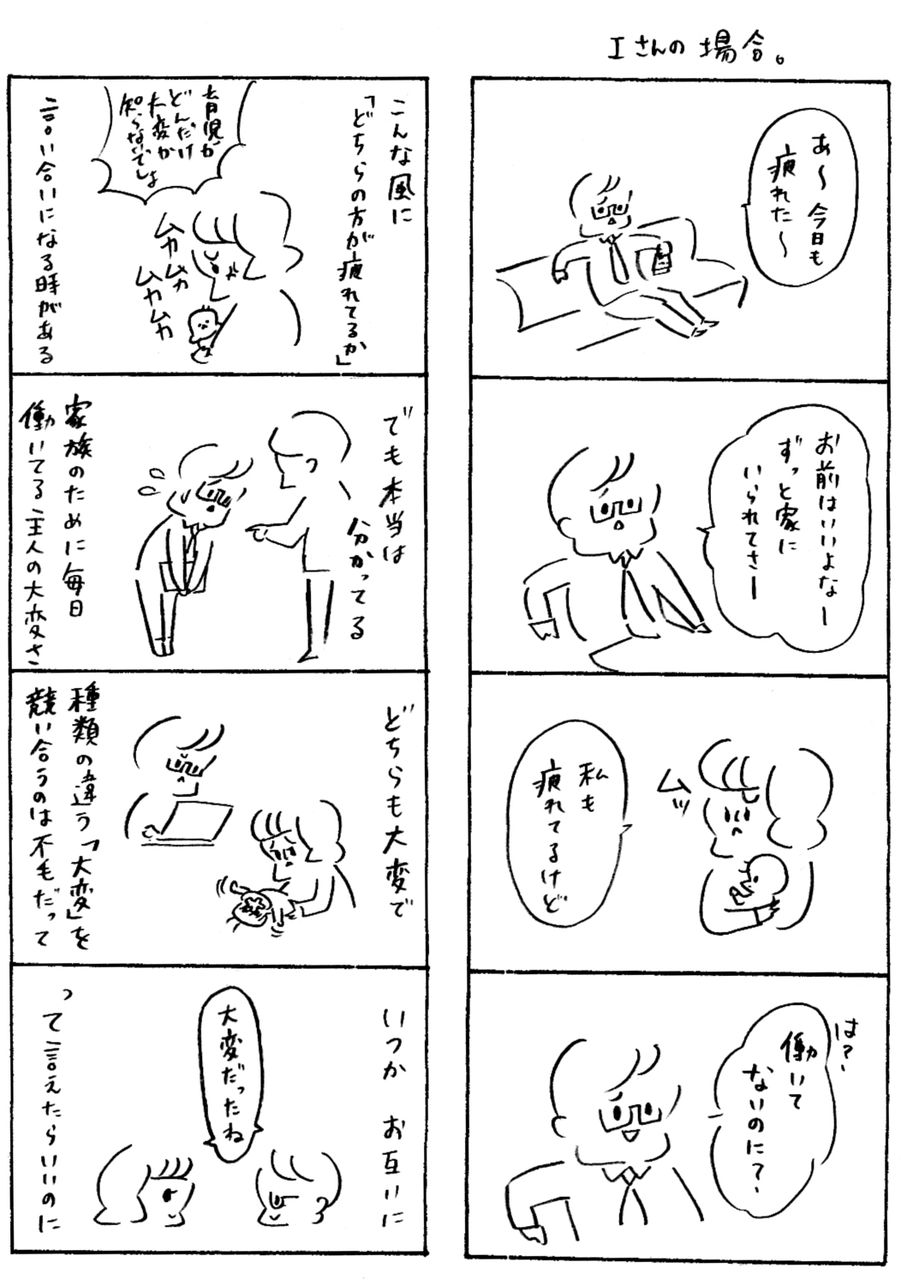 Iさんの場合。
あ〜今日も
疲れた〜
お前はいいよなー
ずっと家に
いられてさー
ムッ
私も
疲れてるけど
は?
働いて
ないのに?
こんな風に
「どちらの方が疲れてるか」
育児が
どんだけ
大変か
知らないでしょ
ムカ
ムカ
ムカ
ムカ
言い合いになる時がある
でも本当は
分かってる
家族のために毎日
働いてる主人の大変さ
どちらも大変で
種類の違う「大変」を
競い合うのは不毛だって
いつか お互いに
大変だったね
って言えたらいいのに